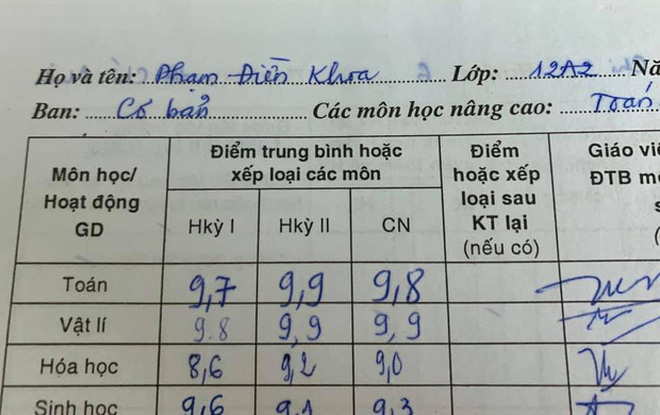 Họ và tên: Phạm Điền Khoa Lớp: 12A2 Nă
Ban: Cơ bản Các môn học nâng cao: Toán
Môn học/ Hoạt động GD
Điểm trung bình hoặc xếp loại các môn
Điểm hoặc xếp loại sau KT lại (nếu có)
Giáo viê ĐTB mô s (
Hkỳ I Hkỳ II CN
Toán 9,7 9,9 9,8
Vật lí 9.8 9,9 9,9
Hóa học 8,6 9,2 9,0
Sinh học 9,6 9,1 9,3